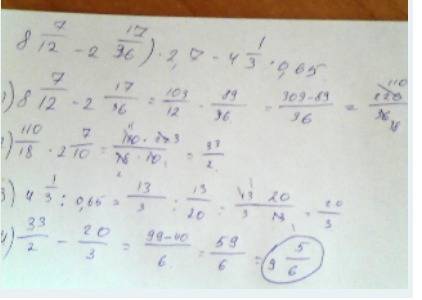 8 7/12 - 2 17/36) · 2,7 - 4 1/3 : 0,65
) 8 7/12 - 2 17/36 = 103/12 - 89/36 = 309-89/36 = 220/36 110/18
) 110/18 · 2 7/10 = 110 · 27 3/18 · 10 2 = 33/2
3) 4 1/3 : 0,65 = 13/3 : 13/20 = 13 20/3 13 = 20/3
4) 33/2 - 20/3 = 99-40/6 = 59/6 = 9 5/6